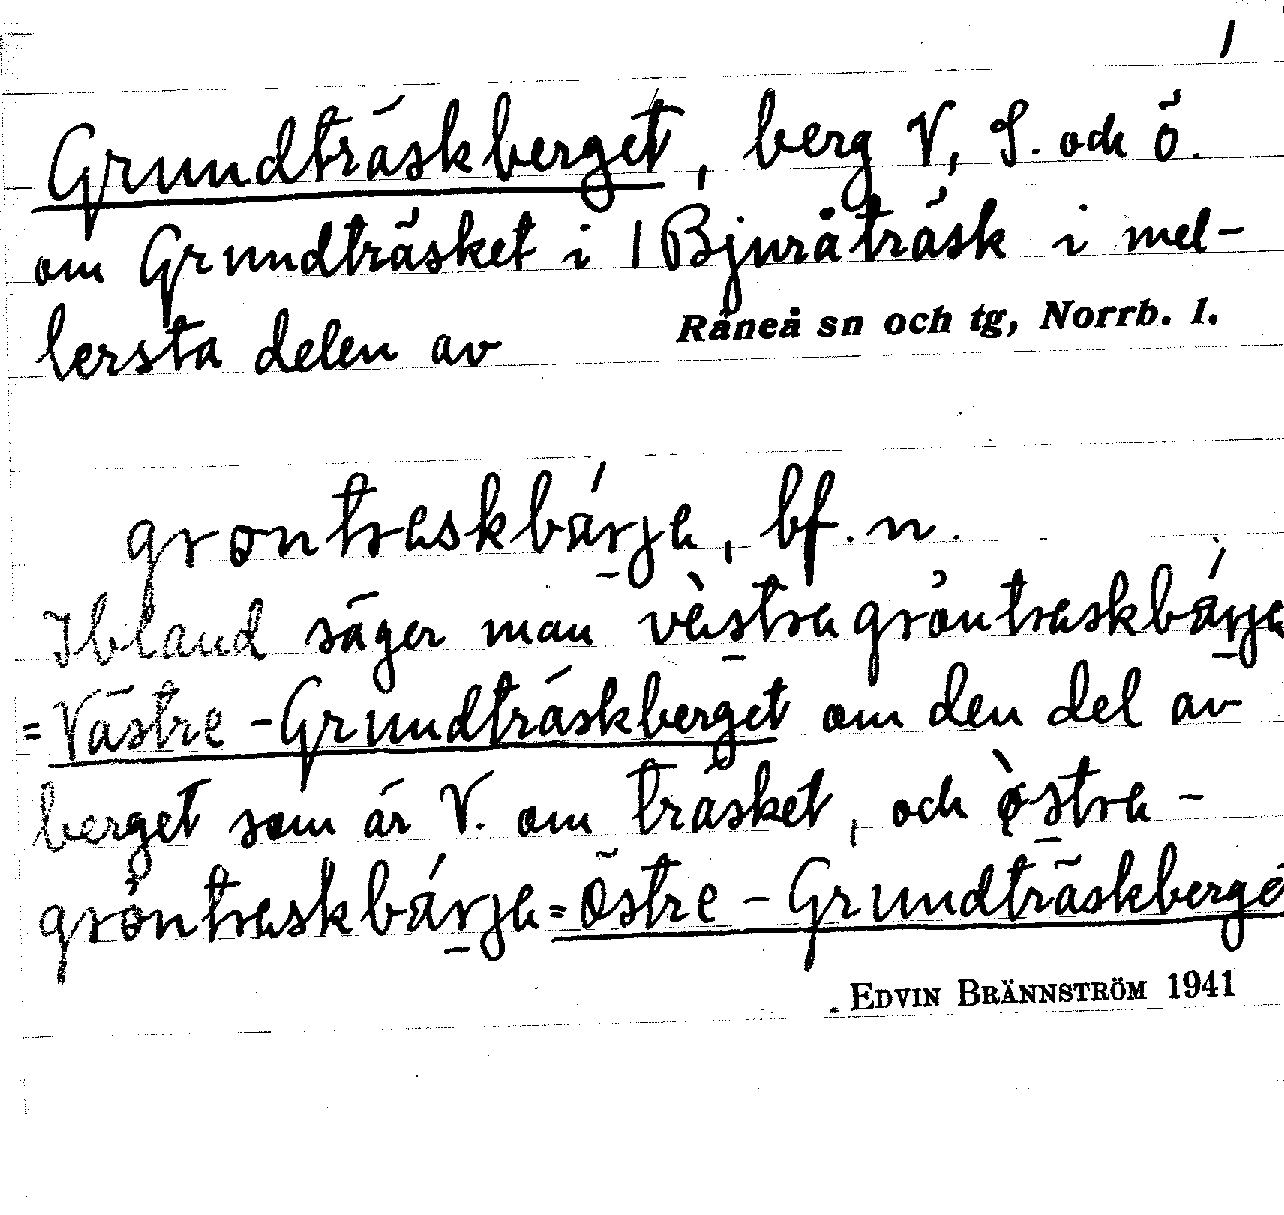 1
Grundträskberget, berg V, S. och ö.
om Grundträsket i 1 Bjuråträsk i mel-
lersta delen av Råneå sn och tg, Norrb. l.
grontraskbárja, bf. n.
Ibland säger man vèstra gróntraskbárja
= Västre-Grundträskberget om den del av
berget som är V. om träsket, och òstra-
gróntraskbárja = Östre-Grundträskberge
EDVIN BRÄNNSTRÖM 1941